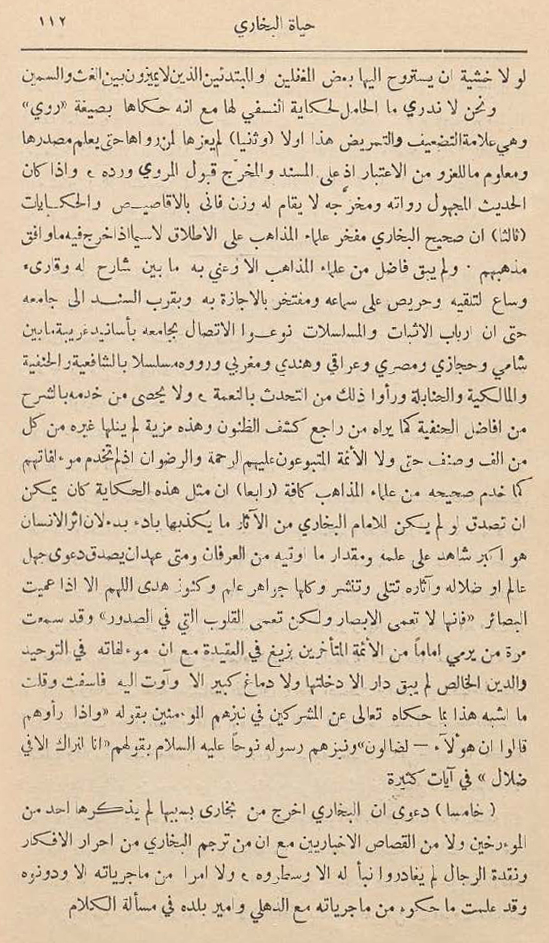 حياة البخاري ١١٢
لو لا خشية ان يستروح اليها بعض المغفلين والمبتدئين الذين لا يميزون بين الغث والسمين
ونحن لا ندري ما الحامل لحكاية النسفي لها مع انه حكاها بصيغة «روي»
وهي علامة التضعيف والتمريض هذا اولا (وثنيا) لم يعزها لمن رواها حتى يعلم مصدرها
ومعلوم ما للعزو من الاعتبار اذ على المسند والمخرّج قبول المروي ورده ، واذا كان
الحديث المجهول رواته ومخرّجه لا يقام له وزن فانى بالاقاصيص والحكايات
(ثالثا) ان صحيح البخاري مفخر علماء المذاهب على الاطلاق لاسيما اذا خرج فيه ما وافق
مذهبهم · ولم يبق فاضل من علماء المذاهب الا وعني به ما بين شارح له وقارىء
وساع لتلقيه وحريص على سماعه ومفتخر بالاجازة به وبقرب السند الى جامعه
حتى ان ارباب الاثبات والمسلسلات نوعوا الاتصال بجامعه بأسانيد غريبة ما بين
شامي وحجازي ومصري وعراقي وهندي ومغربي ورووه مسلسلا بالشافعية والحنفية
والمالكية والحنابلة ورأوا ذلك من التحدث بالنعمة ، ولا يحصى من خدمه بالشرح
من افاضل الحنفية كما يراه من راجع كشف الظنون وهذه مزية لم ينلها غيره من كل
من الف وصنف حتى ولا الأئمة المتبوعون عليهم الرحمة والرضوان اذ لم تخدم موءلفاتهم
كما خدم صحيحه من علماء المذاهب كافة (رابعا) ان مثل هذه الحكاية كان يمكن
ان تصدق لو لم يكن للامام البخاري من الآثار ما يكذبها بادء بدء لان اثر الانسان
هو اكبر شاهد على علمه ومقدار ما اوتيه من العرفان ومتى عهد ان يصدق دعوى جهل
عالم او ضلاله وآثاره تتلى وتنشر وكلها جواهر علم وكنوز هدى اللهم الا اذا عميت
البصائر «فانها لا تعمى الابصار ولكن تعمى القلوب التي في الصدور» وقد سمعت
مرة من يرمي اماماً من الأئمة المتأخرين بزيغ في العقيدة مع ان موءلفاته في التوحيد
والدين الخالص لم يبق دار الا دخلتها ولا دماغ كبير الا وآوت اليه فاسفت وقلت
ما اشبه هذا بما حكاه تعالى عن المشركين في نبزهم الموءمنين بقوله «واذا رأوهم
قالوا ان هوءلاء — لضالون» ونبزهم رسوله نوحاً عليه السلام بقولهم «انا لنراك الا في
ضلال » في آيات كثيرة
( خامسا ) دعوى ان البخاري اخرج من بخارى بسببها لم يذكرها احد من
الموءرخين ولا من القصاص الاخباريين مع ان من ترجم البخاري من احرار الافكار
ونقدة الرجال لم يغادروا نبأ له الا وسطروه ، ولا امرا من ماجرياته الا ودونوه
وقد علمت ما حكوه من ماجرياته مع الذهلي وامير بلده في مسألة الكلام